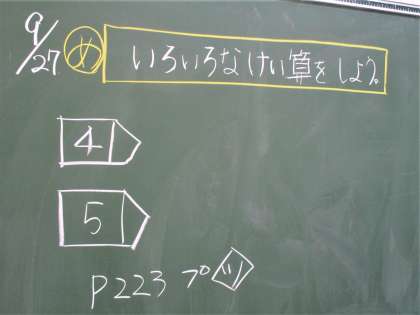 9/27 め いろいろなけい算をしよう。
4
5
P223 プリ